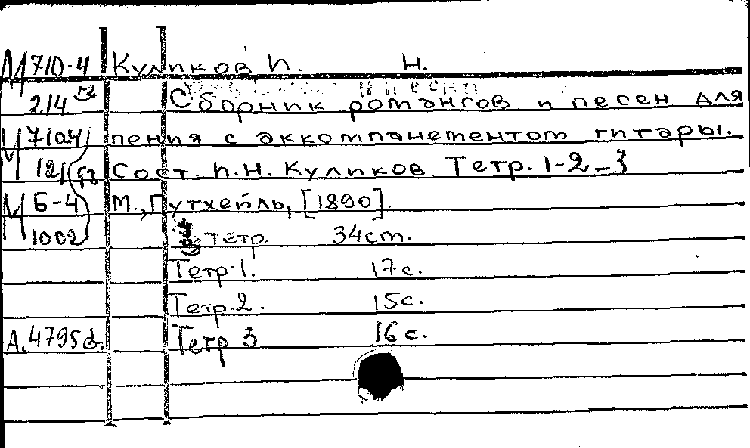 М 710-4 Куликов П. Н.
214 Сборник романсов и песен для
М 710-4 пения с аккомпанементом гитары.
12/ Сост. П.Н. Куликов Тетр. 1-2-3
М Б-4 М., Гутхейль, [1890].
1002 тетр. 34 ст.
Тетр. 1. 17 с.
Тетр. 2. 15 с.
А. 4795 Тетр 3 16 с.